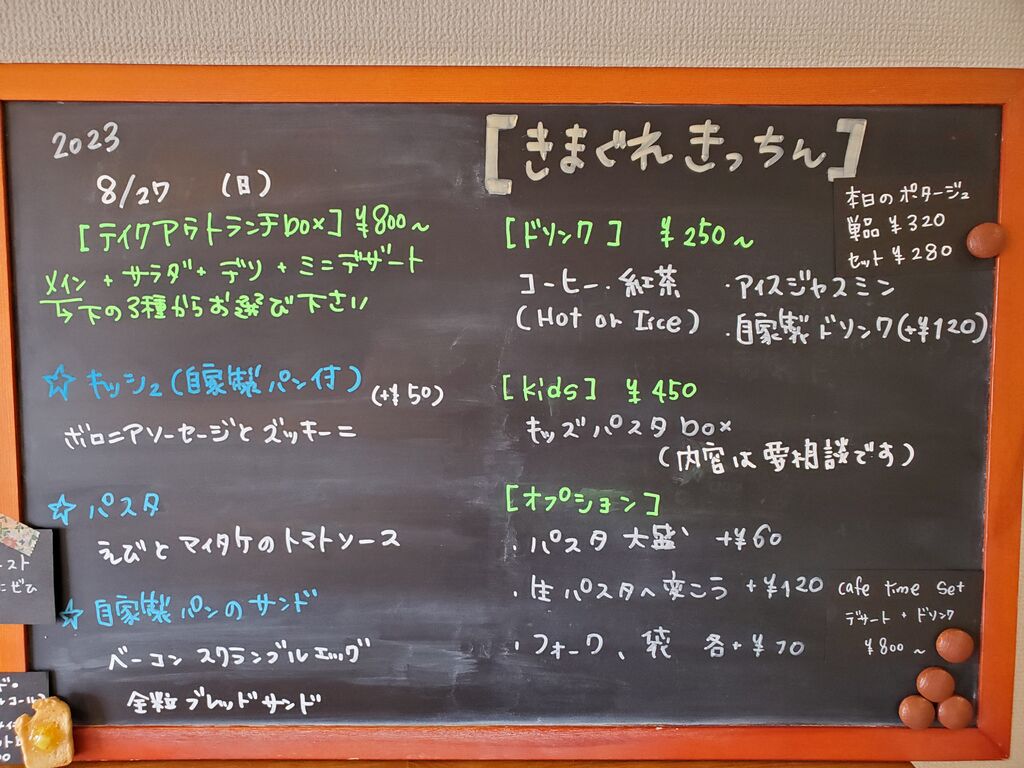 2023
8/27 (日)
[テイクアウトランチbox] ¥800~
メイン + サラダ + デリ + ミニデザート
↳下の3種からお選び下さい
☆ キッシュ(自家製パン付)
(+¥50)
ボロニアソーセージとズッキーニ
☆ パスタ
えびとマイタケのトマトソース
☆ 自家製パンのサンド
ベーコン スクランブルエッグ
全粒ブレッドサンド
[きまぐれきっちん]
本日のポタージュ
単品 ¥320
セット ¥280
[ドリンク] ¥250~
コーヒー・紅茶
(Hot or Iice)
・アイスジャスミン
・自家製ドリンク(+¥120)
[kids] ¥450
キッズパスタbox
(内容は要相談です)
[オプション]
・パスタ 大盛 +¥60
・生パスタへ変こう +¥120
・フォーク、袋 各+¥10
cafe time set
デザート + ドリンク
¥800~
スト
にぜひ